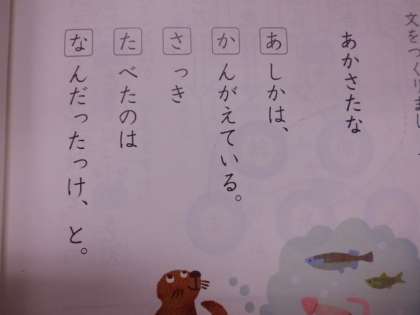 文をつくりまし
あかさたな
あしかは、
かんがえている。
さっき
たべたのは
なんだったっけ、と。